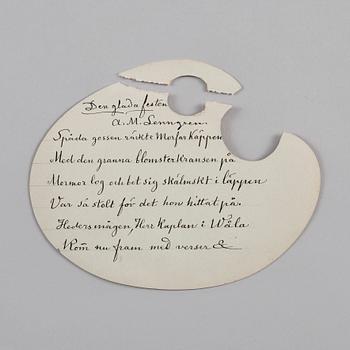 Den glada festen
A. M. Lenngren.
Späda gossen räckte Morfar käppen
Med den granna blomsterkransen på
Mormor log och bet sig skälmskt i läppen
Var så stolt för det hon hittat på.
Hedersmågen, Herr Kaplan i Wåla
Kom nu fram med verser &